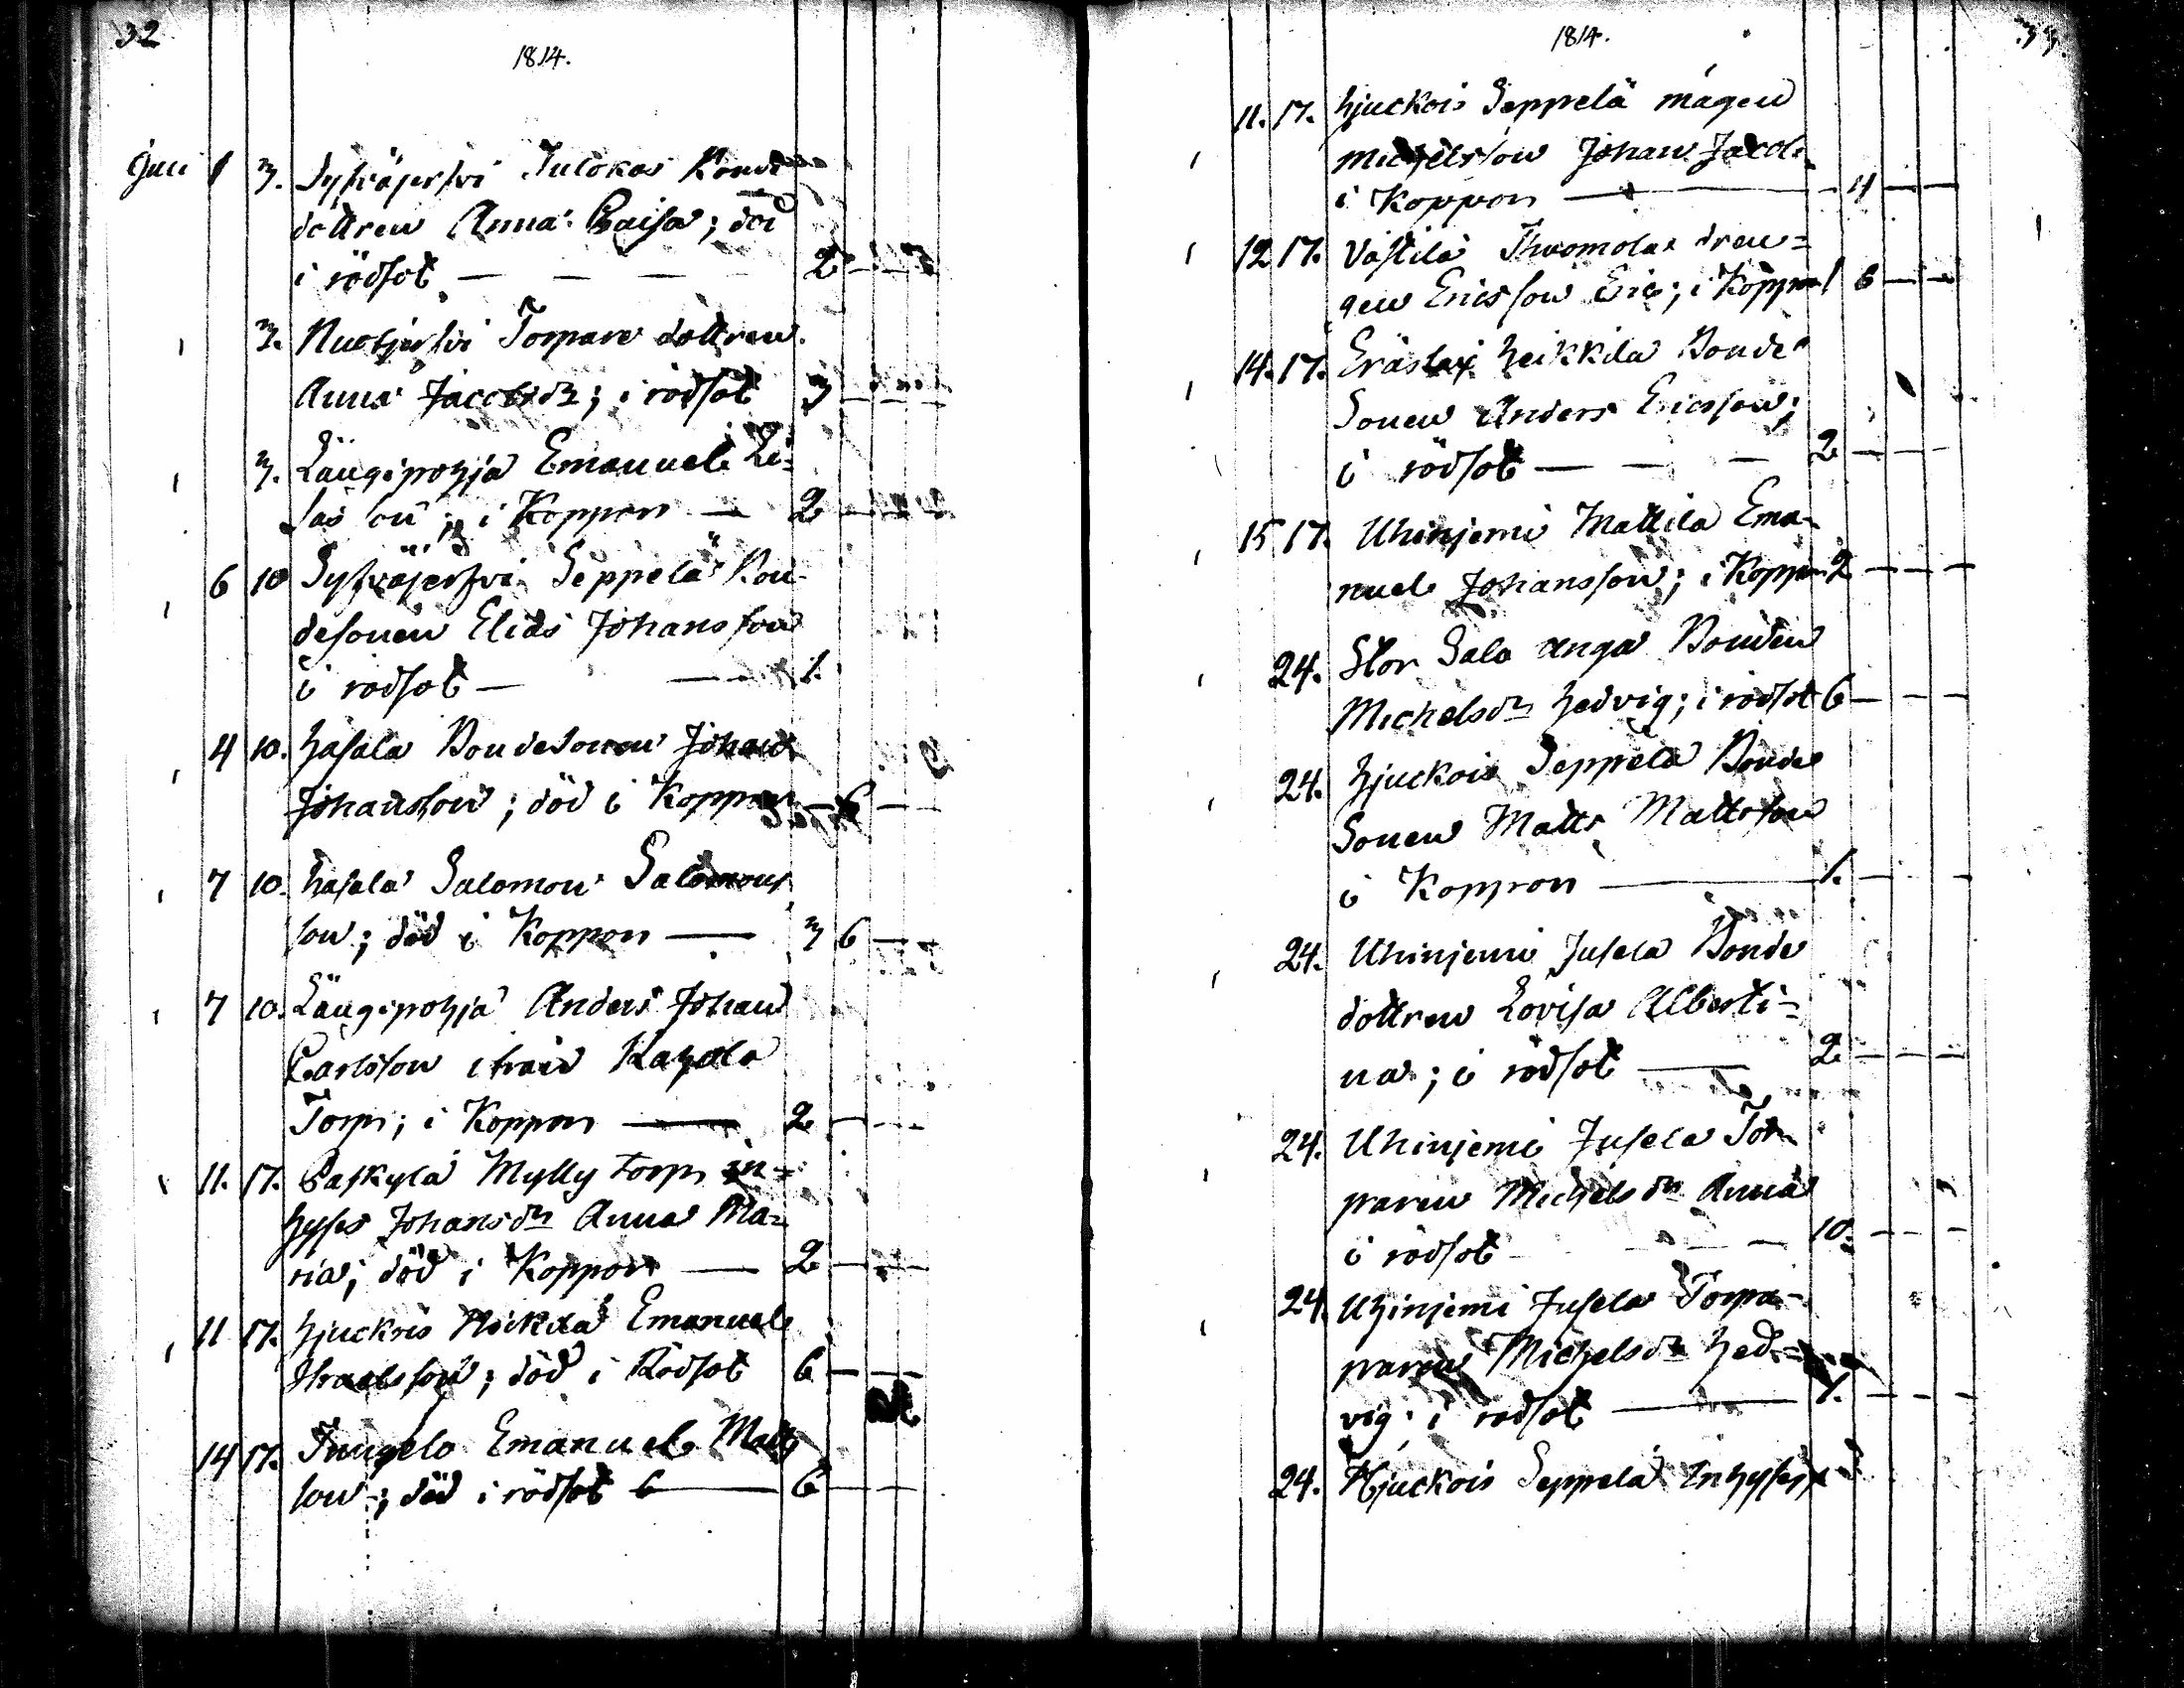 32
1814.
Juli 1 3. Syväjerfvi Julokas Bonde
dottren Anna Caisa; död
i rödsot — — — 2 — — —
3. Nuotjerfvi Torpare dottren
Anna Jacobsdr; i rödsot 3 — — —
3. Längipohja Emanuel Eli=
as son; i Koppon — 2 — — —
6 10 Syväjerfvi Seppelä Bon-
desonen Elias Johansson
i rodsot — — 1.
4 10. Hasala Bondesonen Johan
Johansson; död i Koppon — 6 —
7 10. Hasala Salomon Salomons
son; död i Koppon — 3 6 — —
7 10. Längipohja Anders Johan
Carlsson ifrån
Torp; i Koppon — 2 — — —
11. 17. Paskylä Mylly torp in=
hyses Johansdr Anna Ma=
ria; död i Koppon — 2 — — —
11 17. Hjuckois Heikkilä Emanuel
Israelsson; död i Rödsot 6 — —
14 17. Emanuel Matts
son; död i rödsot 6 — 6 — —
33
1814.
11. 17. Hjuckois Seppelä mågen
Michelsson Johan Jacob
i Koppon — — 4 — —
12 17. Västilä Thuomolas dren=
gen Ericsson Eric; i Koppon 1 6 — —
14. 17. Eräslax Heikkilä Bonde
Sonen Anders Ericsson;
i rödsot — — — 2 — — —
15 17. Uhinjemi Mattila Ema-
nuel Johansson; i Koppon 2 — — —
24. Stor Salo anga Bonden
Michelsdr Hedvig; i rodsot 6 — — —
24. Hjuckois Seppelä Bonde
Sonen Matts Mattsson
i Koppon — 1. — — —
24. Uhinjemi Jusela Bonde
dottren Lovisa Alberti=
na; i rödsot — 2 — — —
24. Uhinjemi Jusela Tor-
paren Michelsdr Anna
i rodsot — — 10. — — —
24. Uhinjemi Jusela Torpa-
paren Michelsdr Hed=
vig; i rodsot — 1. — — —
24. Hjuckois Seppelä Inhyses